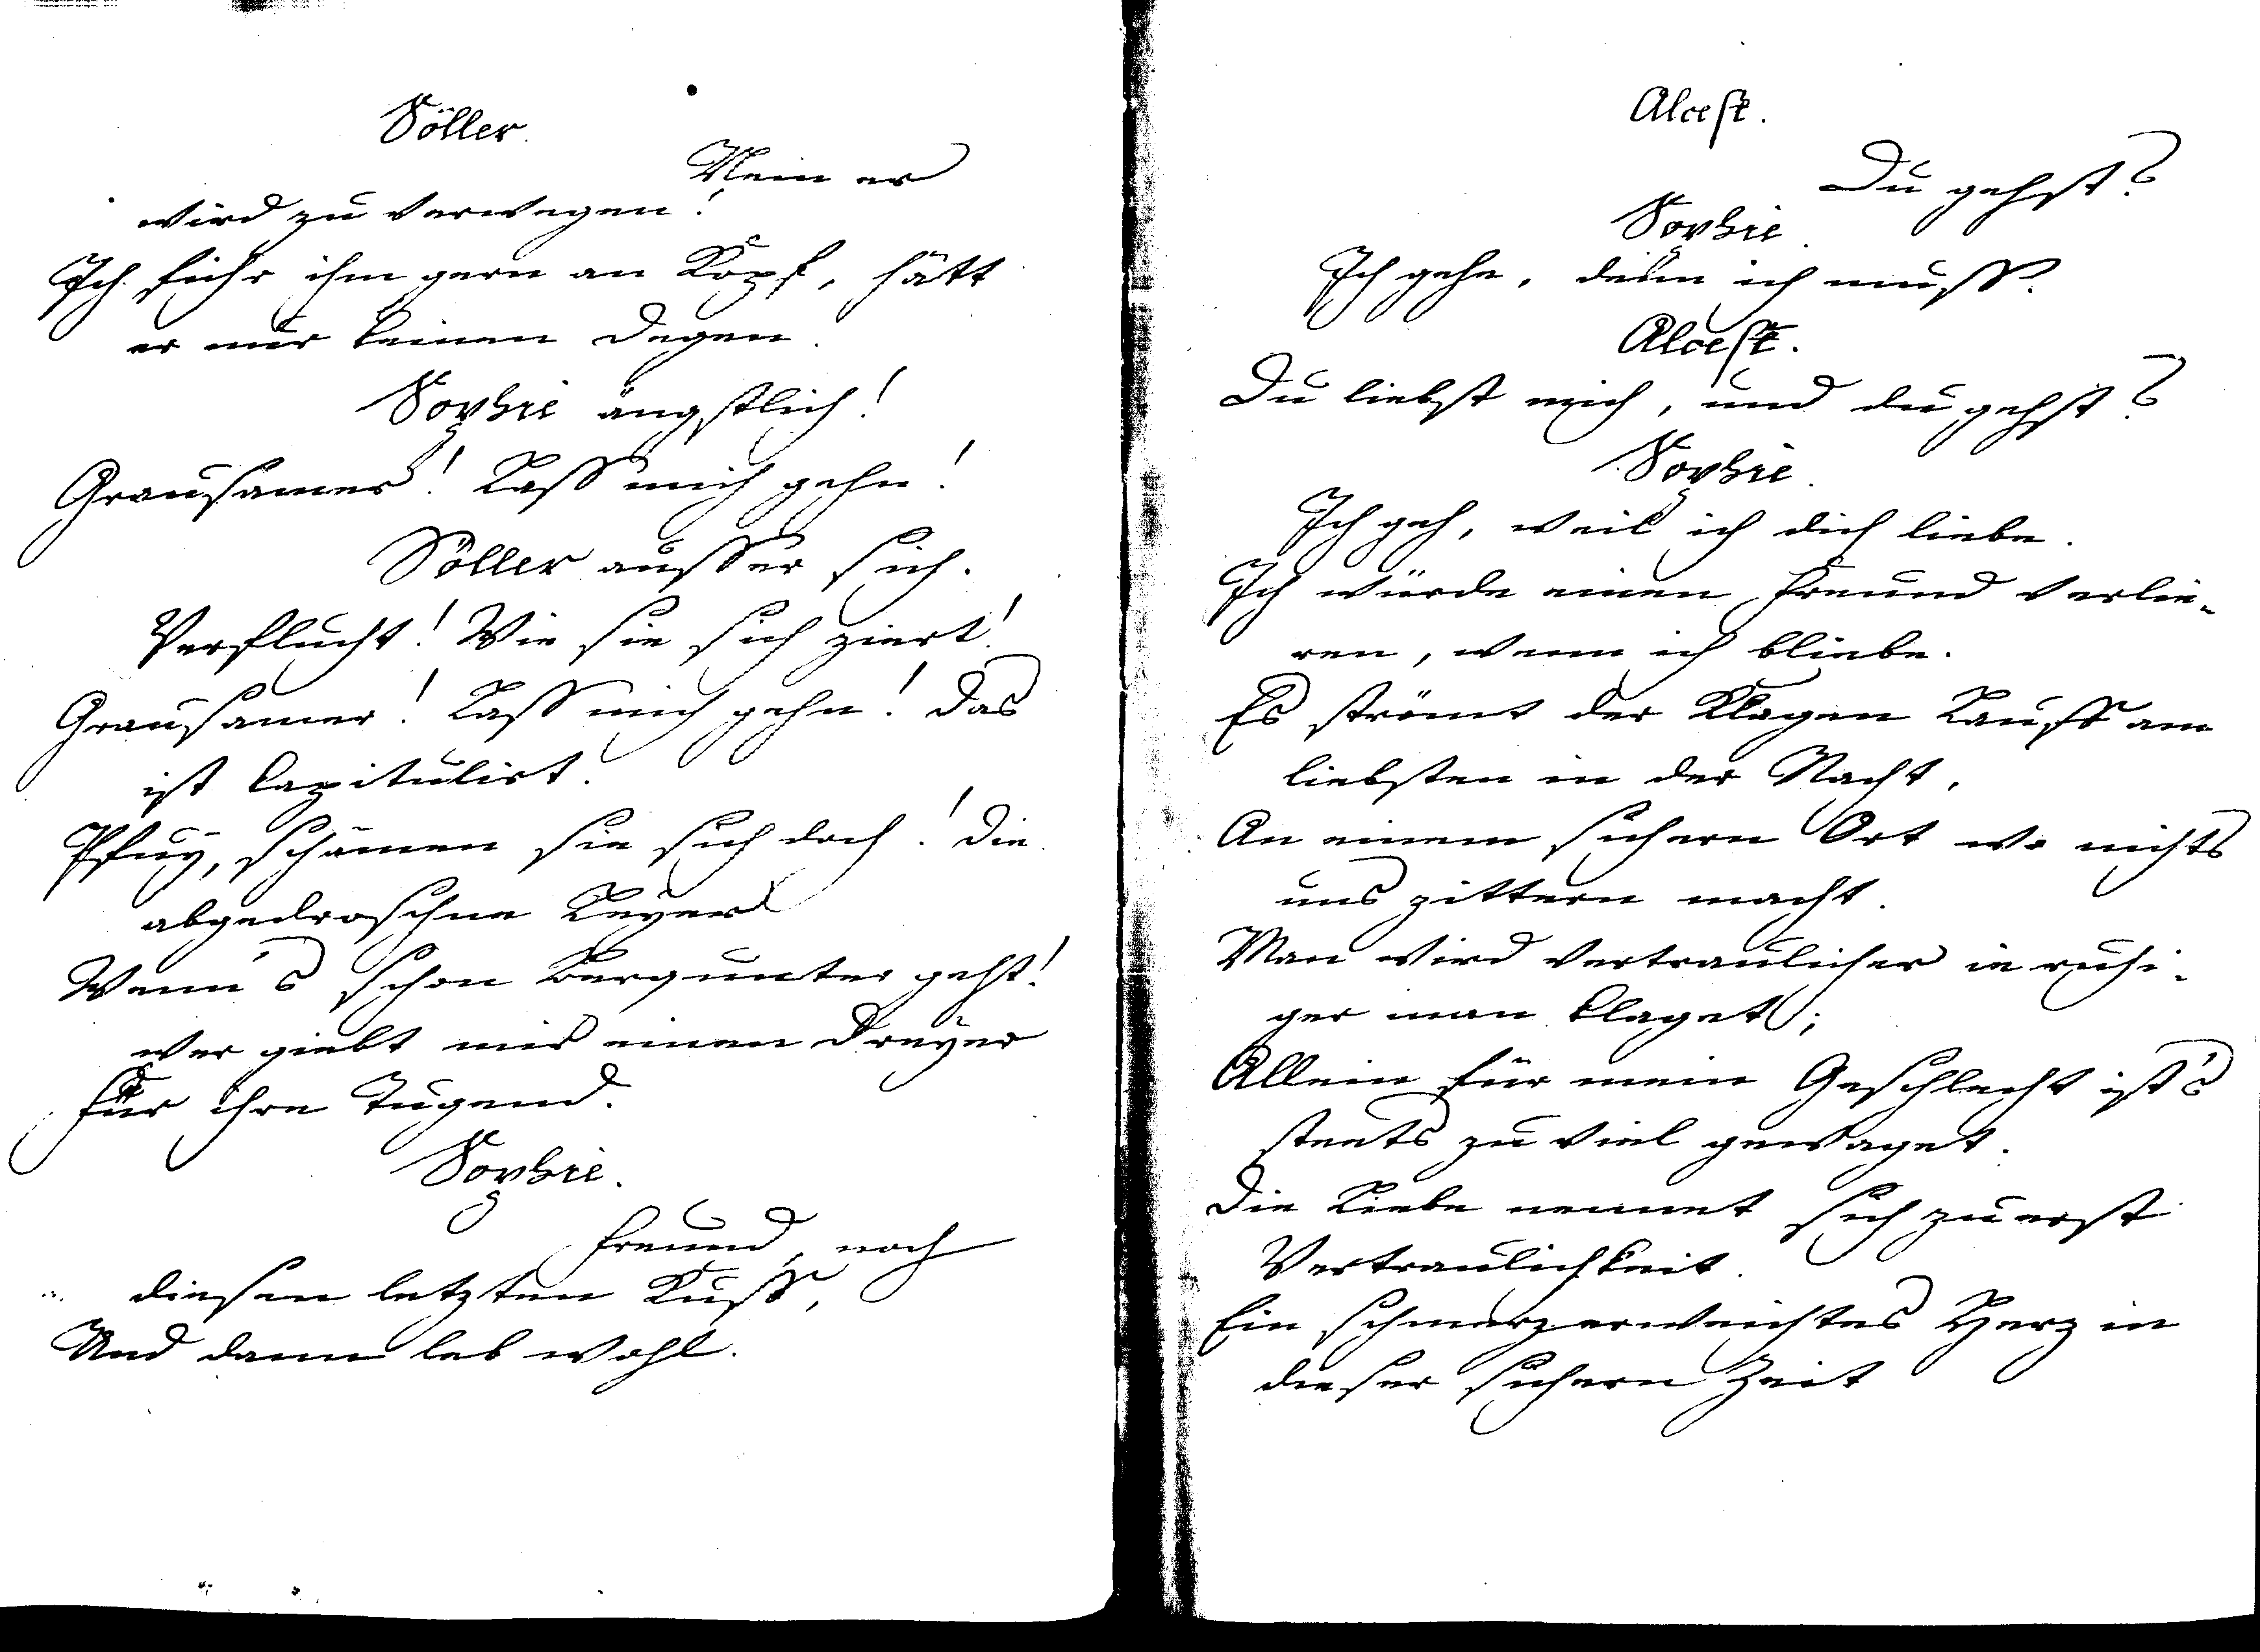 Söller.
Nein er
wird zu verwegen!
Ich führ ihm gern an Kopf, hätt
er nur keinen Degen.
Sophie ängstlich!
Grausamer! Lass mich gehn!
Söller ausser sich.
Verflucht! Wie sie sich ziert!
Grausamer! Lass mich gehn! Das
ist kapitulirt!
Pfuy, schämen sie sich doch! die
abgedroschne Leyer
Wenn's schon Bergunter geht!
wer giebt mir einen Dreyer
Für ihre Tugend.
Sophie.
Freund, noch
diesen letzten Kuss,
Und dann leb wohl.
Alcest.
Du gehst?
Sophie.
Ich gehe, denn ich muss.
Alcest.
Du liebst mich, und du gehst?
Sophie.
Ich geh, weil ich dich liebe.
Ich würde einen Freund verlie-
ren, wenn ich bliebe.
Es strömt der Klagen Lauff am
liebsten in der Nacht,
An einem sichern Ort wo nichts
uns zittern macht.
Man wird vertraulicher ie ruhi-
ger man klaget;
Allein für mein Geschlecht ist's
steets zu viel gewaget.
Die Liebe nennet sich zu erst
Vertraulichkeit.
Ein schmerzerweichtes Herz in
dieser sichern Zeit